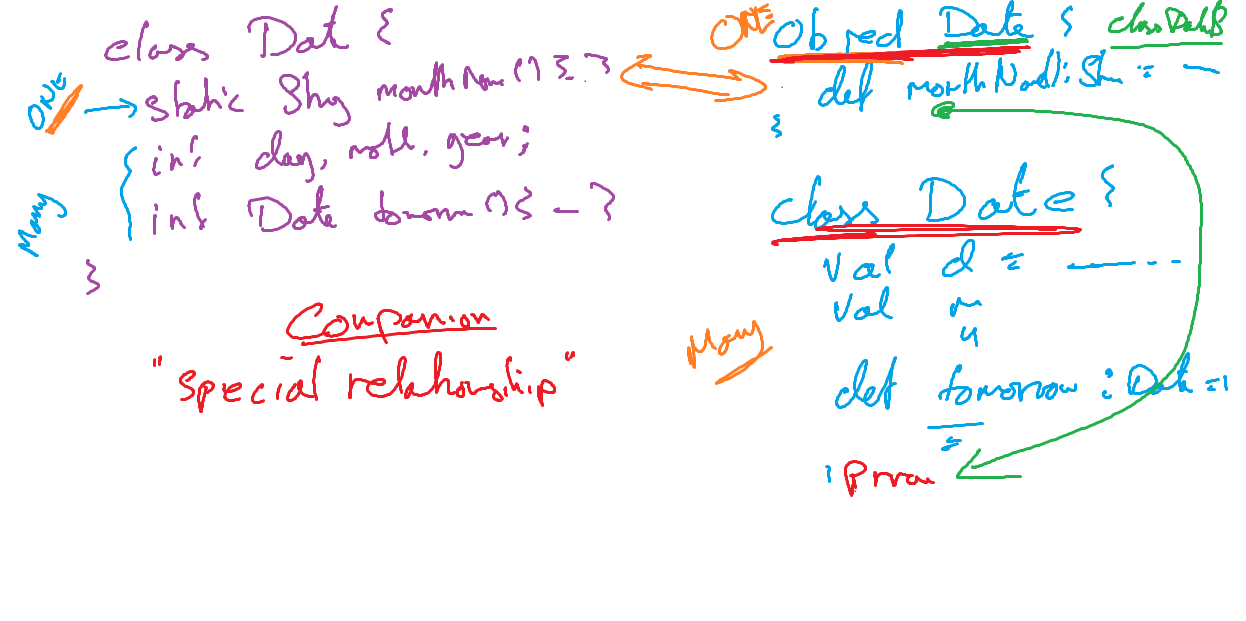 class Dat {
ONE
static Strg monthName () { - }
int day, month, year;
Many
int Date tomorrow () { - }
}
Companion
"special relationship"
ONE
Object Date {
class Date$
def monthName():Str =
}
class Date {
val d =
val m
y
Many
def tomorrow : Date =
=
} Priva